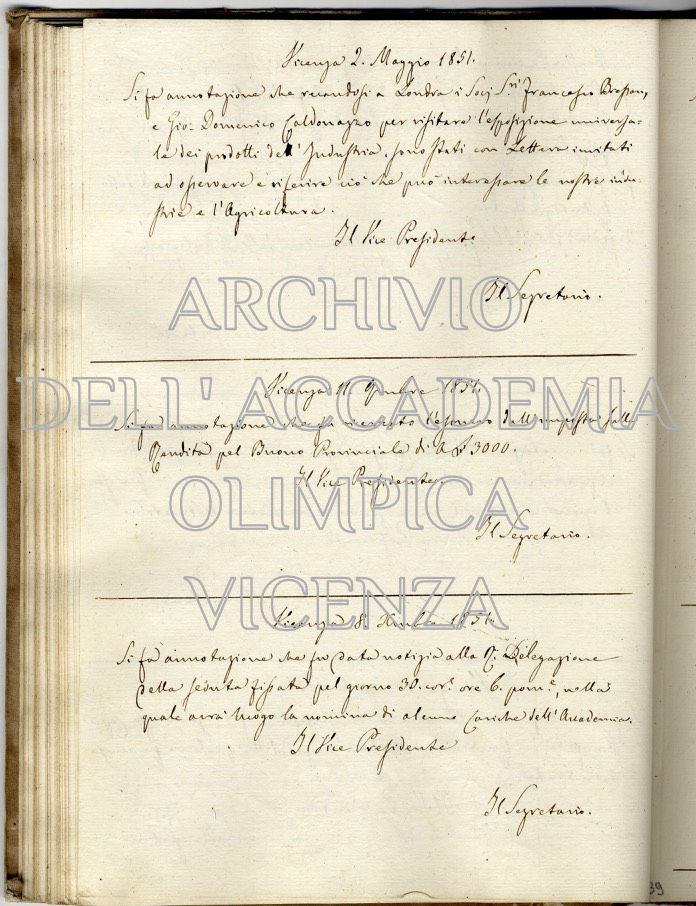 Vicenza 2. Maggio 1851.
Si fa annotazione che recandosi a Londra i Socj Sri Francesco Bressan,
e Gio: Domenico Caldonazzo per visitare l'esposizione universa-
le dei prodotti dell'Industria, sono stati con Lettera invitati
ad osservare e riferire ciò che può interessare le nostre indu-
strie e l'Agricoltura.
Il Vice Presidente
Il Segretario.
ARCHIVIO
DELL'ACCADEMIA
OLIMPICA
VICENZA
Vicenza 11 9mbre 1851.
Si fa annotazione che fu ricercato l'esonero dall'imposta sulla
Rendita pel Buono Provinciale di 3000.
Il Vice Presidente.
Il Segretario.
Vicenza 8. Xmbre 1851.
Si fa annotazione che fu data notizia alla R. Delegazione
della seduta fissata pel giorno 30. corr. ore 6. pome, nella
quale avrà luogo la nomina di alcune Cariche dell'Accademia.
Il Vice Presidente
Il Segretario.
39